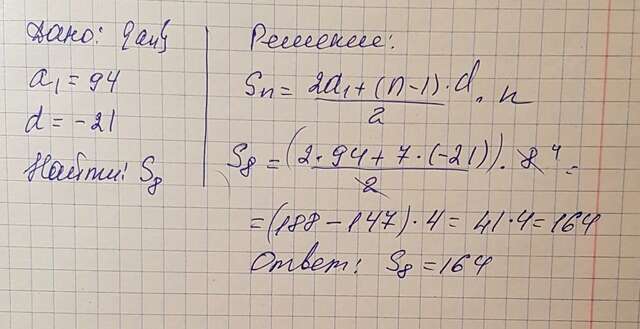 Дано: {an}
a₁ = 94
d = -21
Найти: S₈
Решение:
Sn = (2a₁ + (n-1)·d)/2 · n
S₈ = (2·94 + 7·(-21))/2 · 8 4 =
= (188 - 147)·4 = 41·4 = 164
Ответ: S₈ = 164